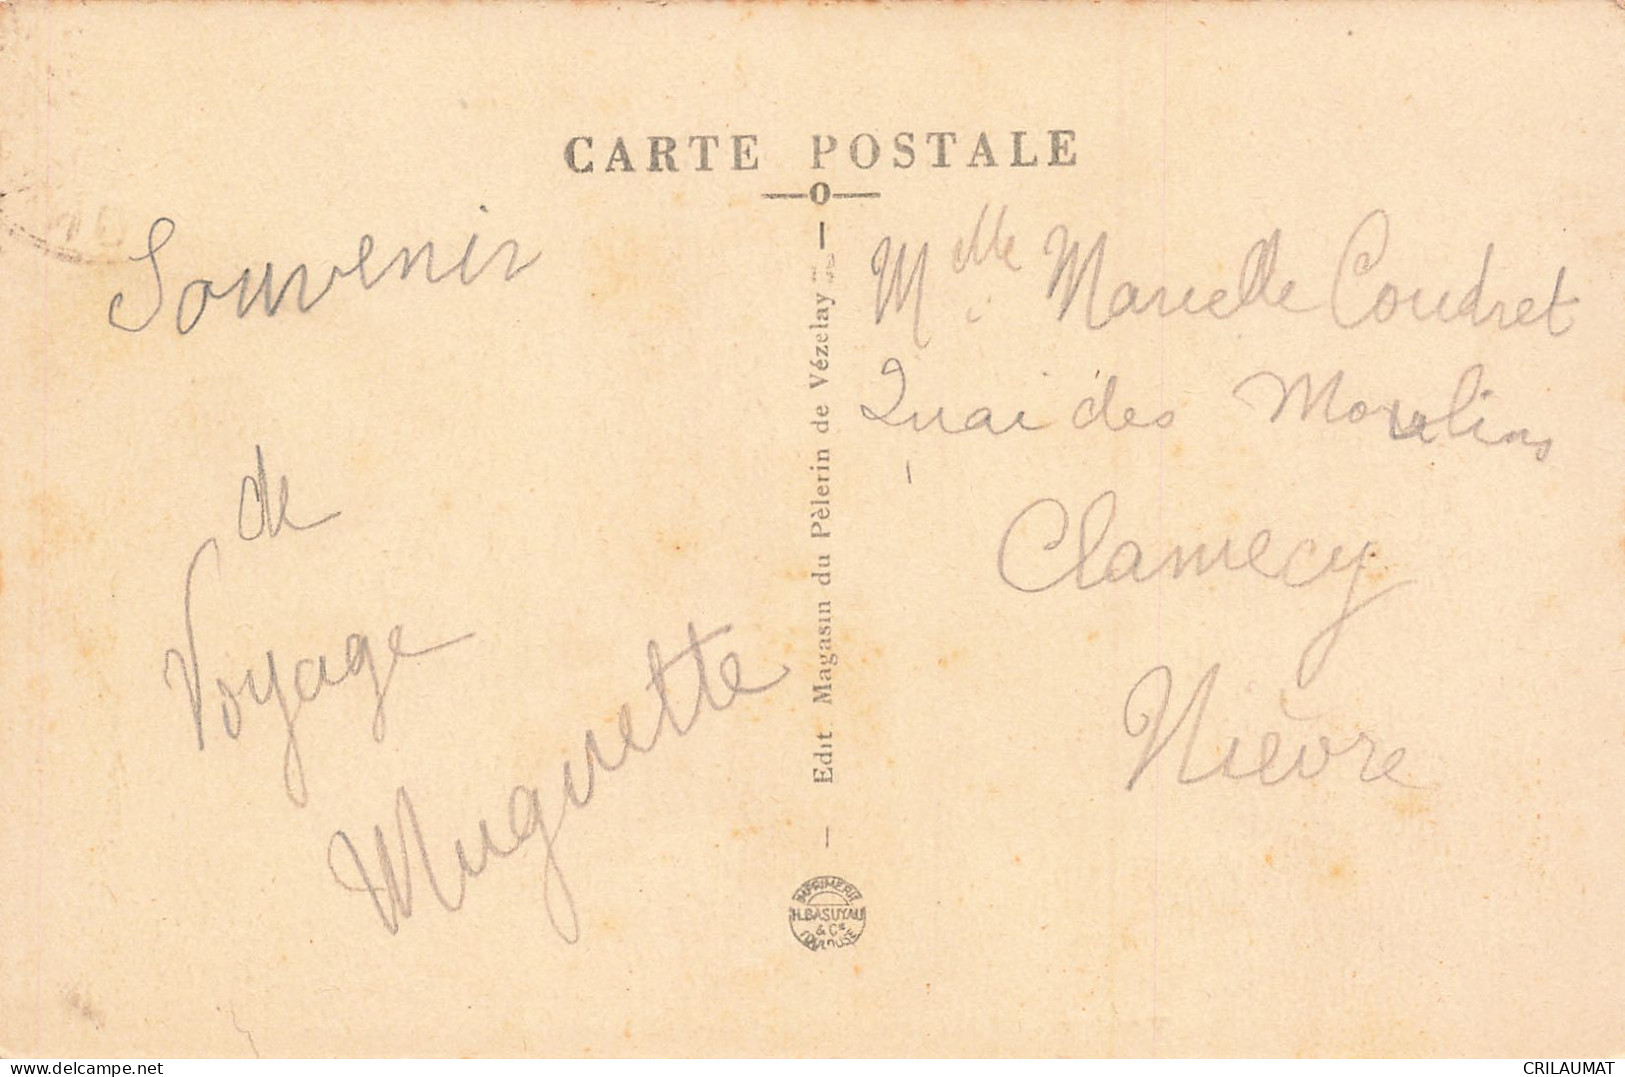 CARTE POSTALE
Souvenir
de
Voyage
Muguette
Edit. Magasin du Pèlerin de Vézelay
IMPRIMERIE
H. BASUYAU
& Cie
TOULOUSE
Mlle Marcelle Coudret
Quai des Moulins
Clamecy
Nièvre
delcampe.net
CRILAUMAT